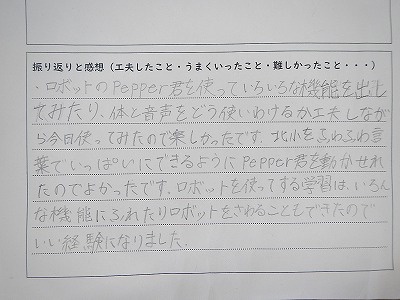 振り返りと感想（工夫したこと・うまくいったこと・難しかったこと・・・）
・ロボットのPepper君を使っていろいろな機能を出し
てみたり、体と音声をどう使いわけるか工夫しなが
ら今日使ってみたので楽しかったです。北小をふわふわ言
葉でいっぱいにできるようにPepper君を動かせれ
たのでよかったです。ロボットを使ってする学習は、いろん
な機能にふれたりロボットをさわることもできたので
いい経験になりました。